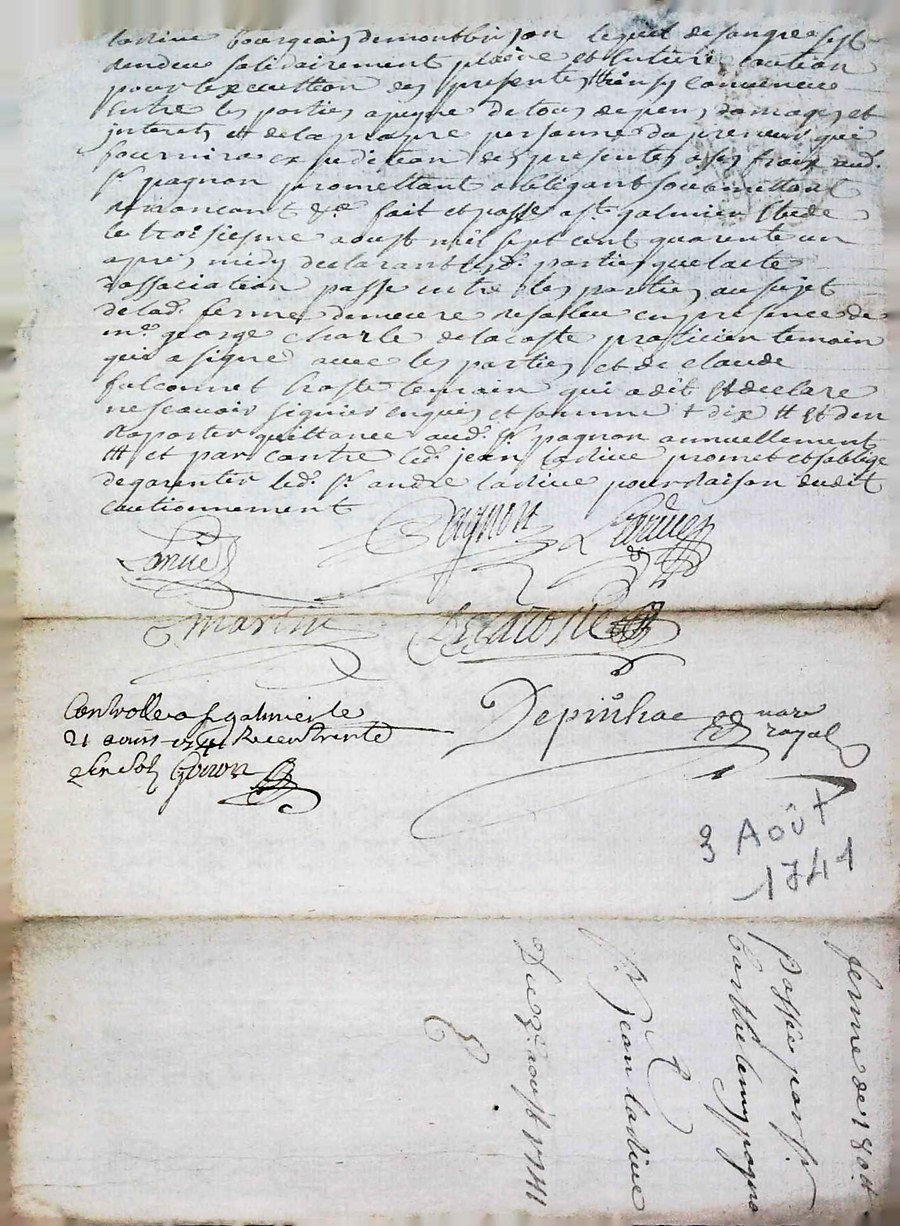 ladive bourgeois demontbrison lequel desongre sest
rendeu solidairement pleige et caution
pour lexecution des presentes ainsy convenu
entre les parties a peyne de tous depens domages et
interets et de la propre personne du preneur qui
fournira expedition des presentes a ses fraix aud.
sr pagnon promettant obligeant soumettant
renoncant &c fait et passé a st galmier etude
le troisiesme aoust mil sept cent quarente un
apres midy declarant lesd. parties que lacte
dassociation passé entre les parties au sujet
de lad. ferme demeure resoleu en presence de
me george charle delacoste praticien temoin
qui a signé avec les parties et de claude
falconnet hoste temoin qui a dit et declaré
ne scavoir signer enquis et sommé + dix tt et den
raporter quittance aud. sr pagnon annuellement
tt et par contre led. jean ladive promet et soblige
de garentir led. sr andré ladive pour raison dudit
cautionnement
Pagnon
Martin Delacoste
Controllé a st galmier le
21 aoust 1741 Receu trente
Depinhac notaire
royal
3 Août
1741
ferme de 180 tt
passée par sr
Barthelemy pagnon
A
sr jean ladive
Du 3e aoust 1741